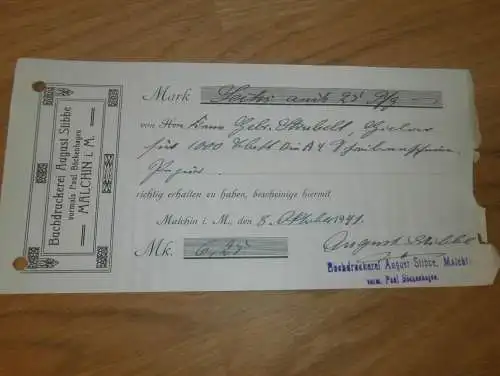 Buchdruckerei August Stibbe
vormals Paul Böckenhagen
MALCHIN i. M.
Mark Sechs und 25 Pfg
von Herren Gebr. Strubelt, Gielow
für 1000 Blatt Din A 4 Schreibmaschinen
Papier
richtig erhalten zu haben, bescheinige hiermit
Malchin i. M., den 8. Oktober 1941.
Mk. 6,25
August Stibbe
Buchdruckerei August Stibbe, Malchi
vorm. Paul Böckenhagen.